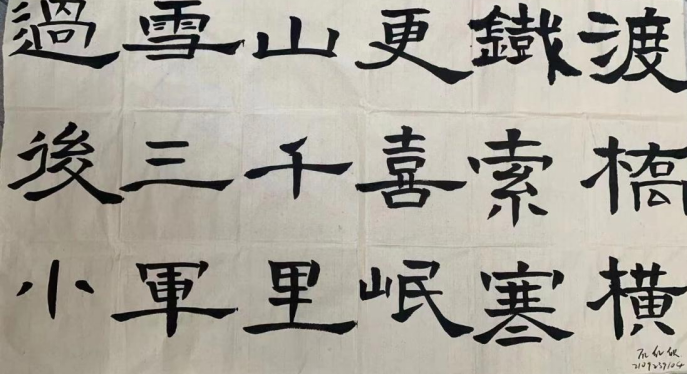 渡橋横
鐵索寒
更喜岷
山千里
雪三軍
過後小